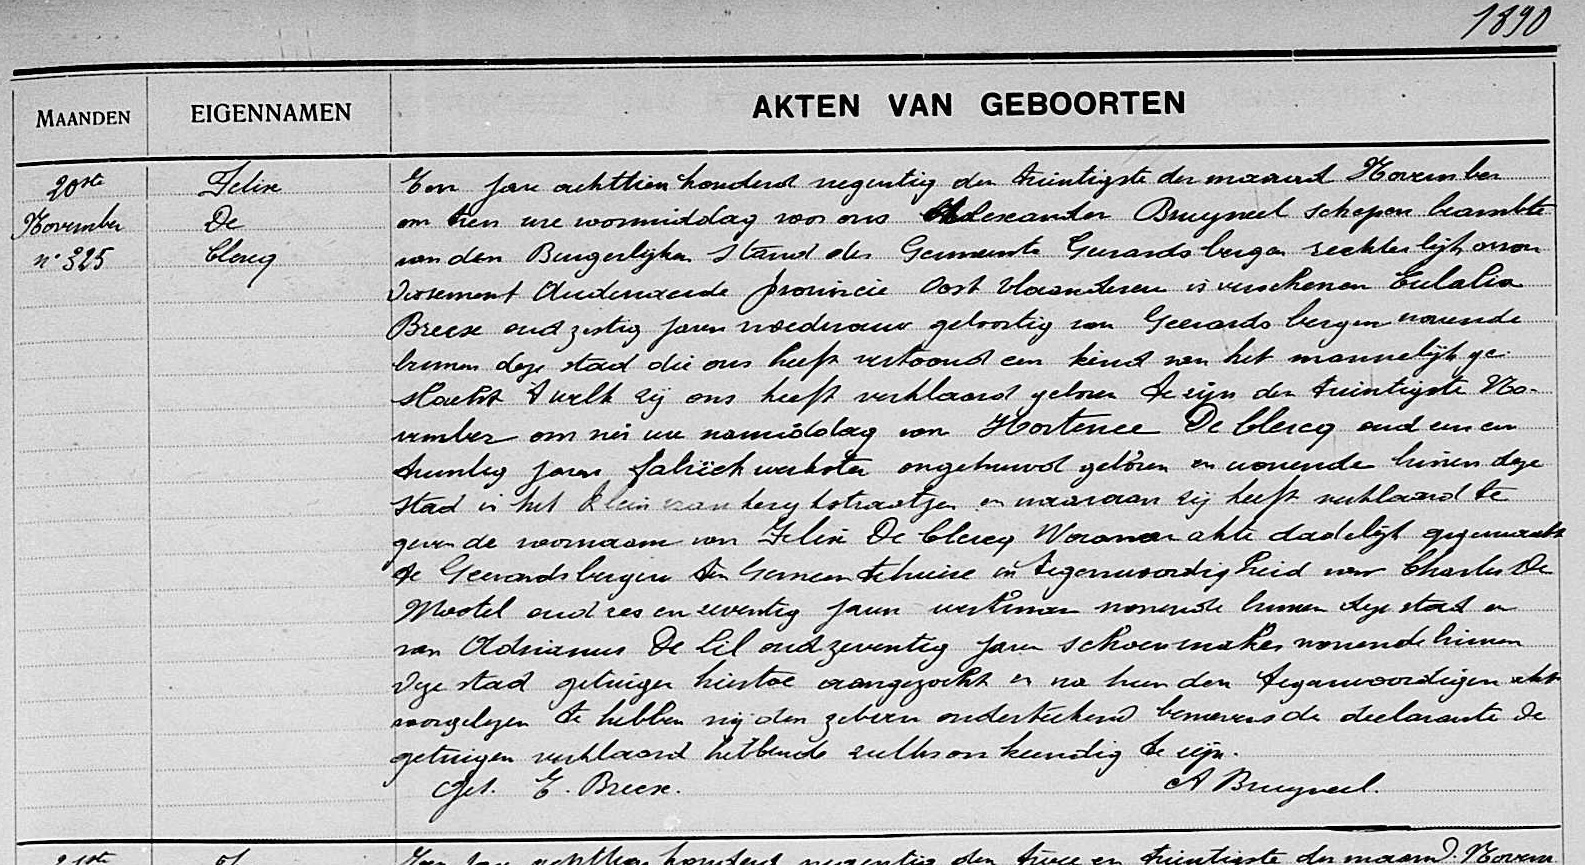 1890
MAANDEN EIGENNAMEN AKTEN VAN GEBOORTEN
20ste Felix Een jare achttien honderd negentig den twintigste der maand November
November De om tien ure voormiddag voor ons Alexander Bruyneel schepen beambte
n° 325 Clercq van den Burgerlijken Stand der Gemeente Geeraardsbergen rechterlijk arron
dissement Audenaerde provincie Oost Vlaanderen is verschenen Eulalia
Breex oud zestig jaren vroedvrouw geboortig van Geerardsbergen wonende
binnen deze stad die ons heeft vertoond een kind van het mannelijk ge-
slacht t welk zij ons heeft verklaard geboren te zijn den twintigste No-
vember om uur namiddag van Hortence De Clercq oud een en
twintig jaren fabriek werkster ongehuwd geboren en wonende binnen deze
stad in het Klein straatjen en waaraan zij heeft verklaard te
geven de voornaam van Felix De Clercq Waarvan akte dadelijk opgemaakt
te Geerardsbergen ten Gemeentehuise in tegenwoordigheid van Charles De
Mortel oud zes en zeventig jaren werkman wonende binnen deze stad en
van Adrianus De Lil oud zeventig jaren schoenmaker wonende binnen
deze stad getuigen hiertoe aangezocht en na hen den tegenwoordigen akt
voorgelezen te hebben wij den zelven onderteekend benevens de declarante de
getuigen verklaard hebbende zulks onkundig te zijn.
Get. E. Breex. A Bruyneel.
21ste Een jare achttien honderd negentig den twee en twintigste der maand Novem